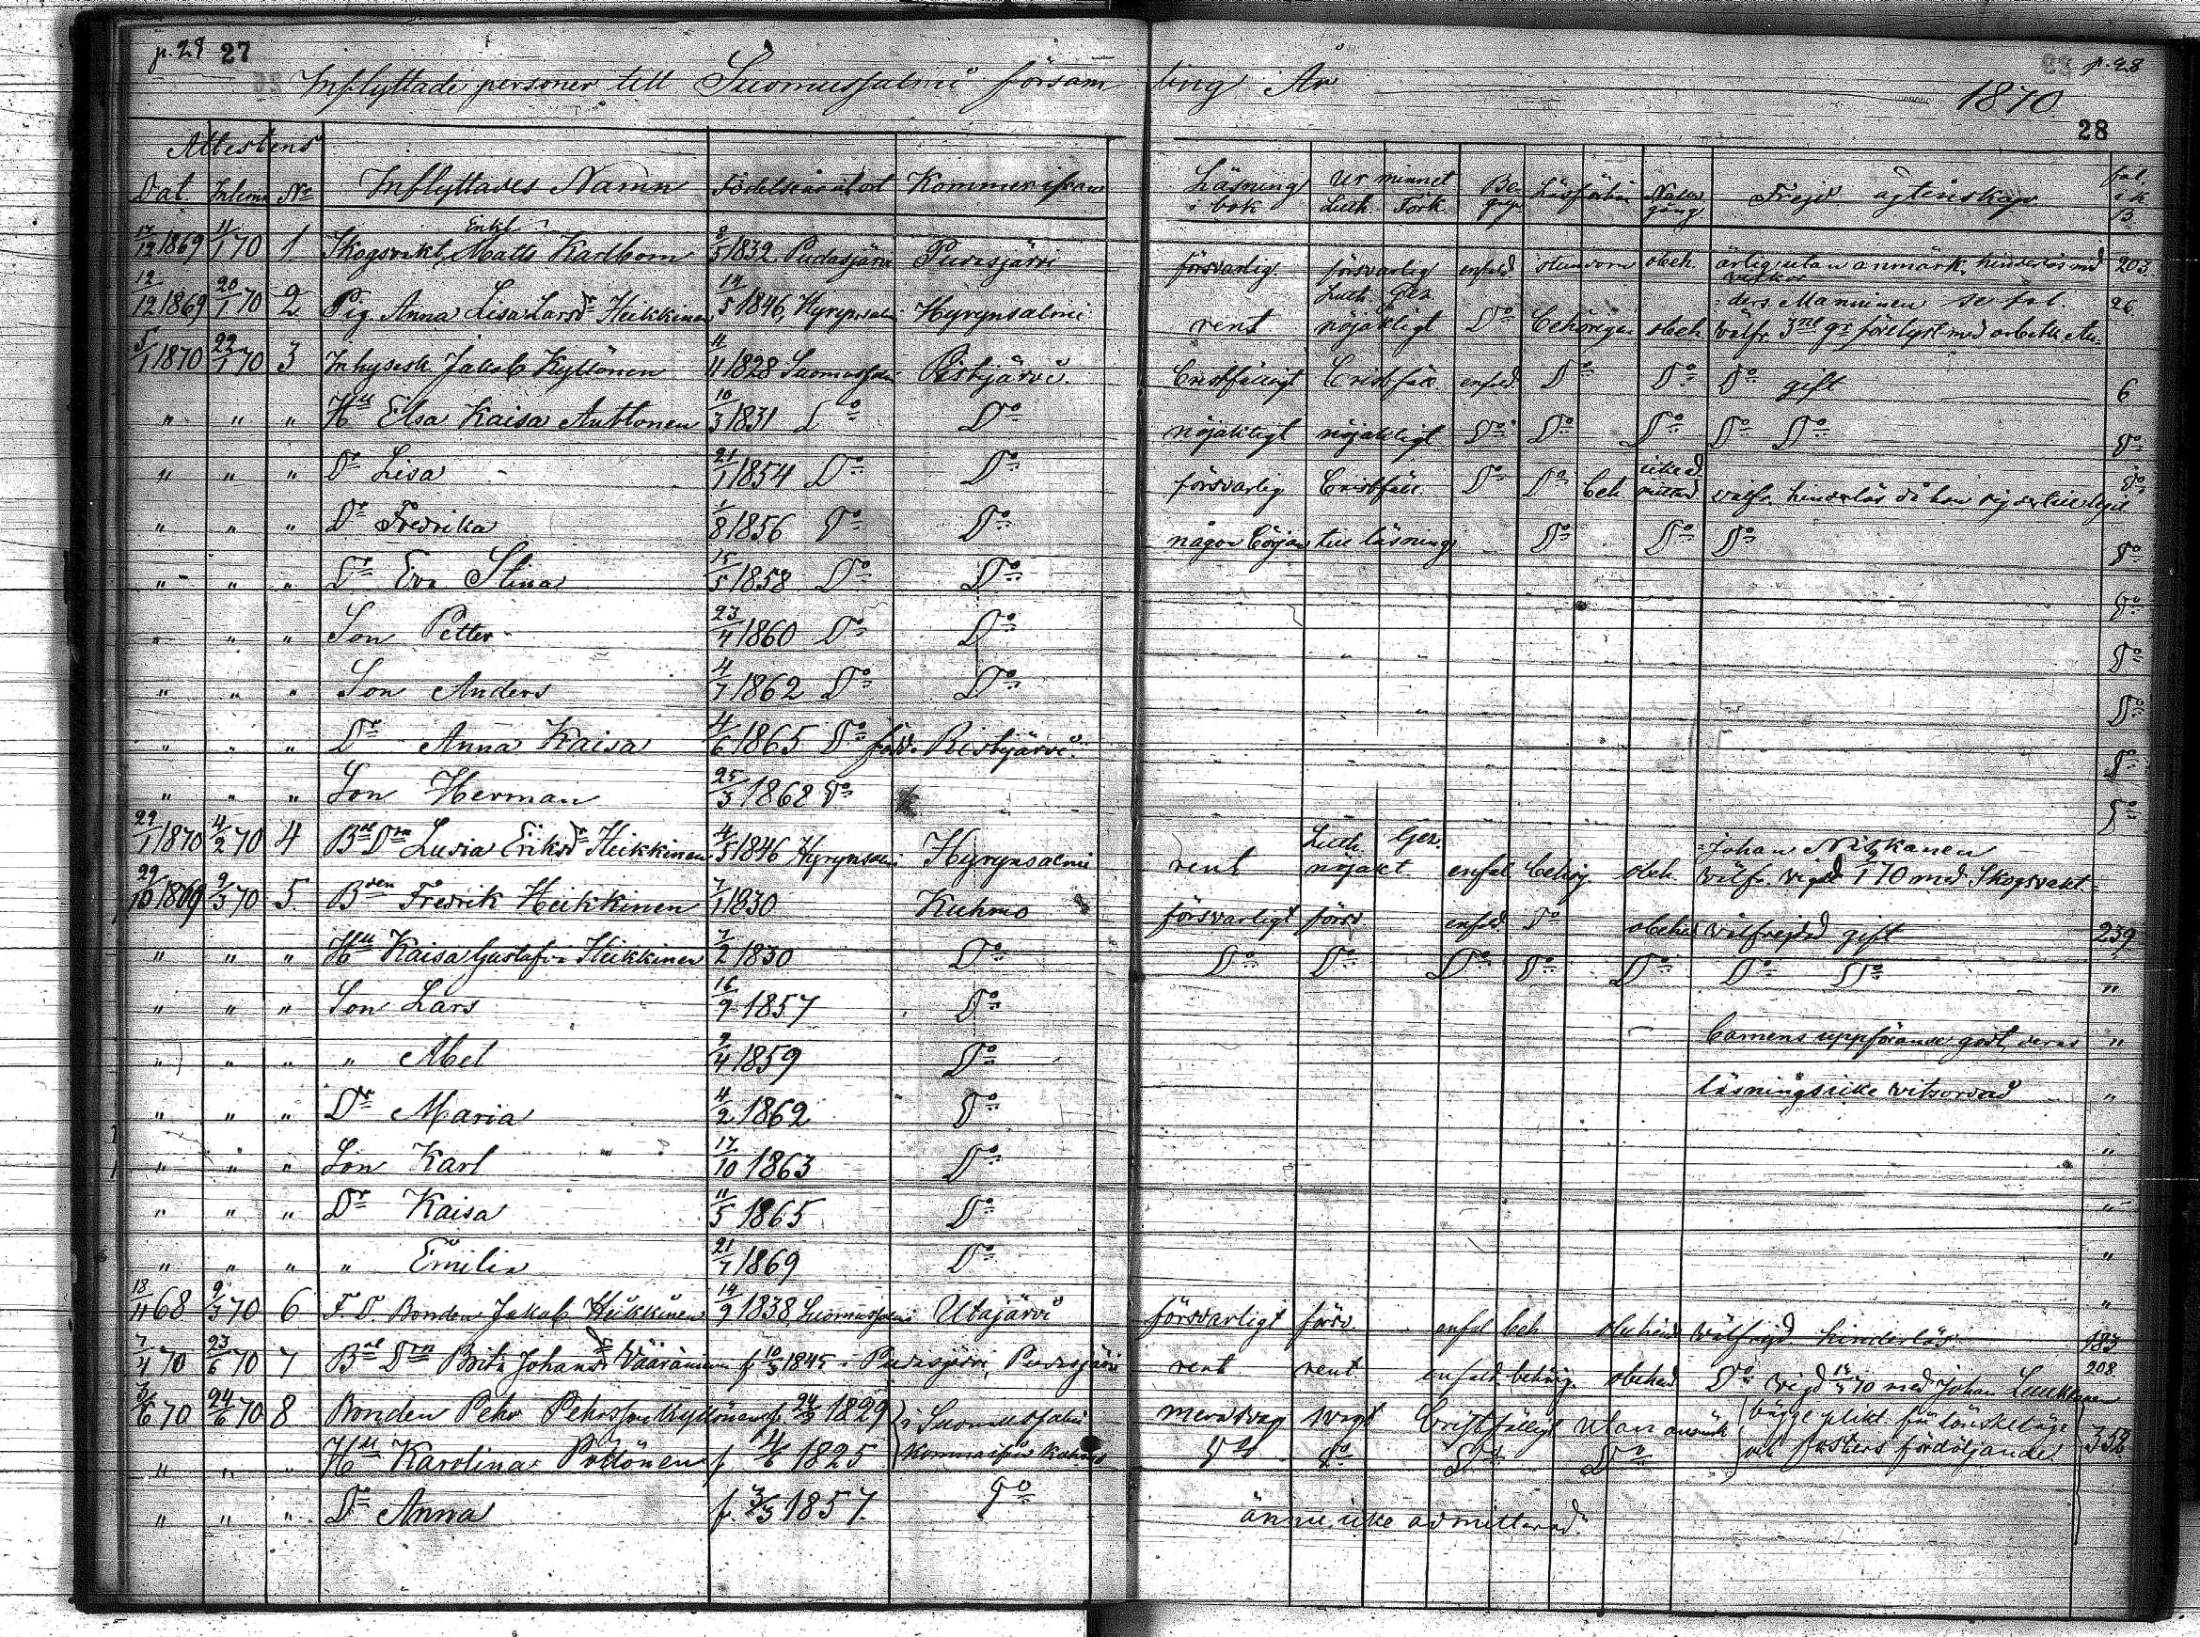 p. 27 27
p. 28
28
Inflyttade personer till Suomussalmi församling År 1870.
Attestens
Dat. Inlemn No Inflyttades Namn Födelseår o. ort Kommer ifrån Läsning i bok Ur minnet Luth. Fork. Begrepp Natvardsgång Frejd ägtenskap fol. i k. B.
17/12 1869 11/1 70 1 Skogsvakt. Enkl. Matts Karlbom 8/5 1832 Pudasjärvi Pudasjärvi försvarlig försvarlig enfald obeh. ärlig utan anmärk. hinderlös 203.
12/12 1869 20/1 70 2 Pig. Anna Lisa Larsdr Heikkinen 14/5 1846, Hyrynsalmi Hyrynsalmi rent Luth. Gez. nöjaktigt Do behörigen obeh. välfr. 3ne gr förelyst med ders Manninen se fol. 26
5/1 1870 22/1 70 3 Inhysesk Jakob Kyllönen 11/11 1828 Suomussalmi Ristijärvi. Bristfälligt Bristfäll. enfald Do Do Do gift 6
" " " Hu Elsa Kaisa Anttonen 10/3 1831 Do Do nöjaktigt nöjaktigt Do Do Do Do Do Do
" " " Dr Lisa 21/1 1854 Do Do försvarlig Bristfäll. Do Do beh. icke admitterad välfr. hinderlös Do
" " " Dr Fredrika 1/8 1856 Do Do någon början till läsning Do Do Do Do
" " " Dr Eva Stina 15/5 1858 Do Do Do
" " " Son Petter 23/4 1860 Do Do Do
" " " Son Anders 4/7 1862 Do Do Do
" " " Dr Anna Kaisa 4/6 1865 Do född i Ristijärvi. Do
" " " Son Herman 25/3 1868 Do Do
29/1 1870 4/2 70 4 Bde Dtr Lusia Eriksdr Heikkinen 4/5 1846 Hyrynsalmi Hyrynsalmi rent Luth. Gez. nöjakt enfal behörig. obeh. välfr. vigd 70 med Skogsvakt Johan Niskanen
29/10 1869 9/3 70 5. Bden Fredrik Heikkinen 7/1 1830 Kuhmo försvarligt försv enfald Do obehind välfrejdad gift 239
" " " Hu Kaisa Gustafsdr Heikkinen 7/2 1830 Do Do Do Do Do Do Do Do "
" " " Son Lars 16/9 1857 Do
" " " " Abel 9/4 1859 Do barnens uppförande godt, deras "
" " " Dr Maria 4/2 1862 Do läsning icke vitsordad "
" " " Son Karl 17/10 1863 Do "
" " " Dr Kaisa 11/5 1865 Do "
" " " " Emilia 21/7 1869 Do "
18/11 68 9/3 70 6 F. D. Bonden Jakob Heikkinen 14/9 1838 Suomussalmi Utajärvi försvarligt försv enfal beh obehind välfrejd hinderlös 183
7/4 70 23/5 70 7 Bde Dtr Brita Johansdr Vääränen f. 10/5 1845 i Pudasjärvi, Pudasjärvi rent rent enfald behörig. obehind Do vigd 70 med Johan 208
3/6 70 24/6 70 8 Bonden Pehr Pehrsson Kyllönen f. 24/3 1829 i Suomussalmi svagt bristfälligt utan anmärk bägge plikt. för lönskeläge 352
" " " Hu Karolina f 4/6 1825 kommer ifrån Kuhmo Do Do Do Do och fosters fördöljande.
" " " Dr Anna f. 3/3 1857. Do ännu icke admitterad.